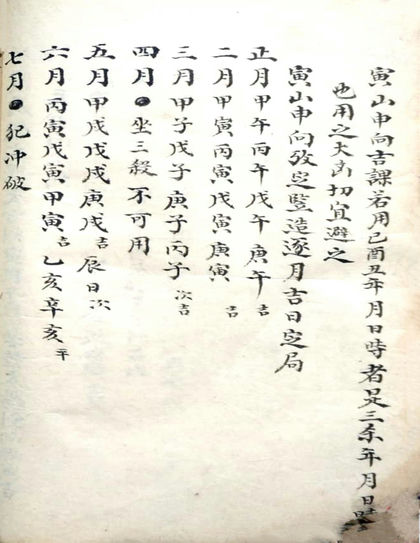 寅山申向吉課若用巳酉丑年月日時者是三殺年月日時
也用之大凶切宜避之
寅山申向攷定豎造逐月吉日定局
正月甲午丙午戊午庚午吉
二月甲寅丙寅戊寅庚寅吉
三月甲子戊子庚子丙子次吉
四月●坐三殺不可用
五月甲戌戊戌庚戌吉辰日次
六月丙寅戊寅甲寅吉乙亥辛亥平
七月●犯冲破